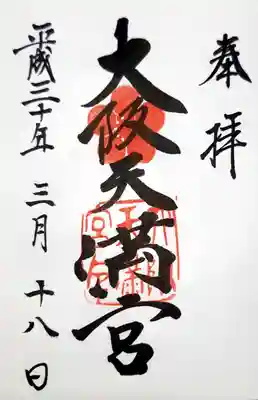 奉拝
大阪天満宮
平成三十年三月十八日